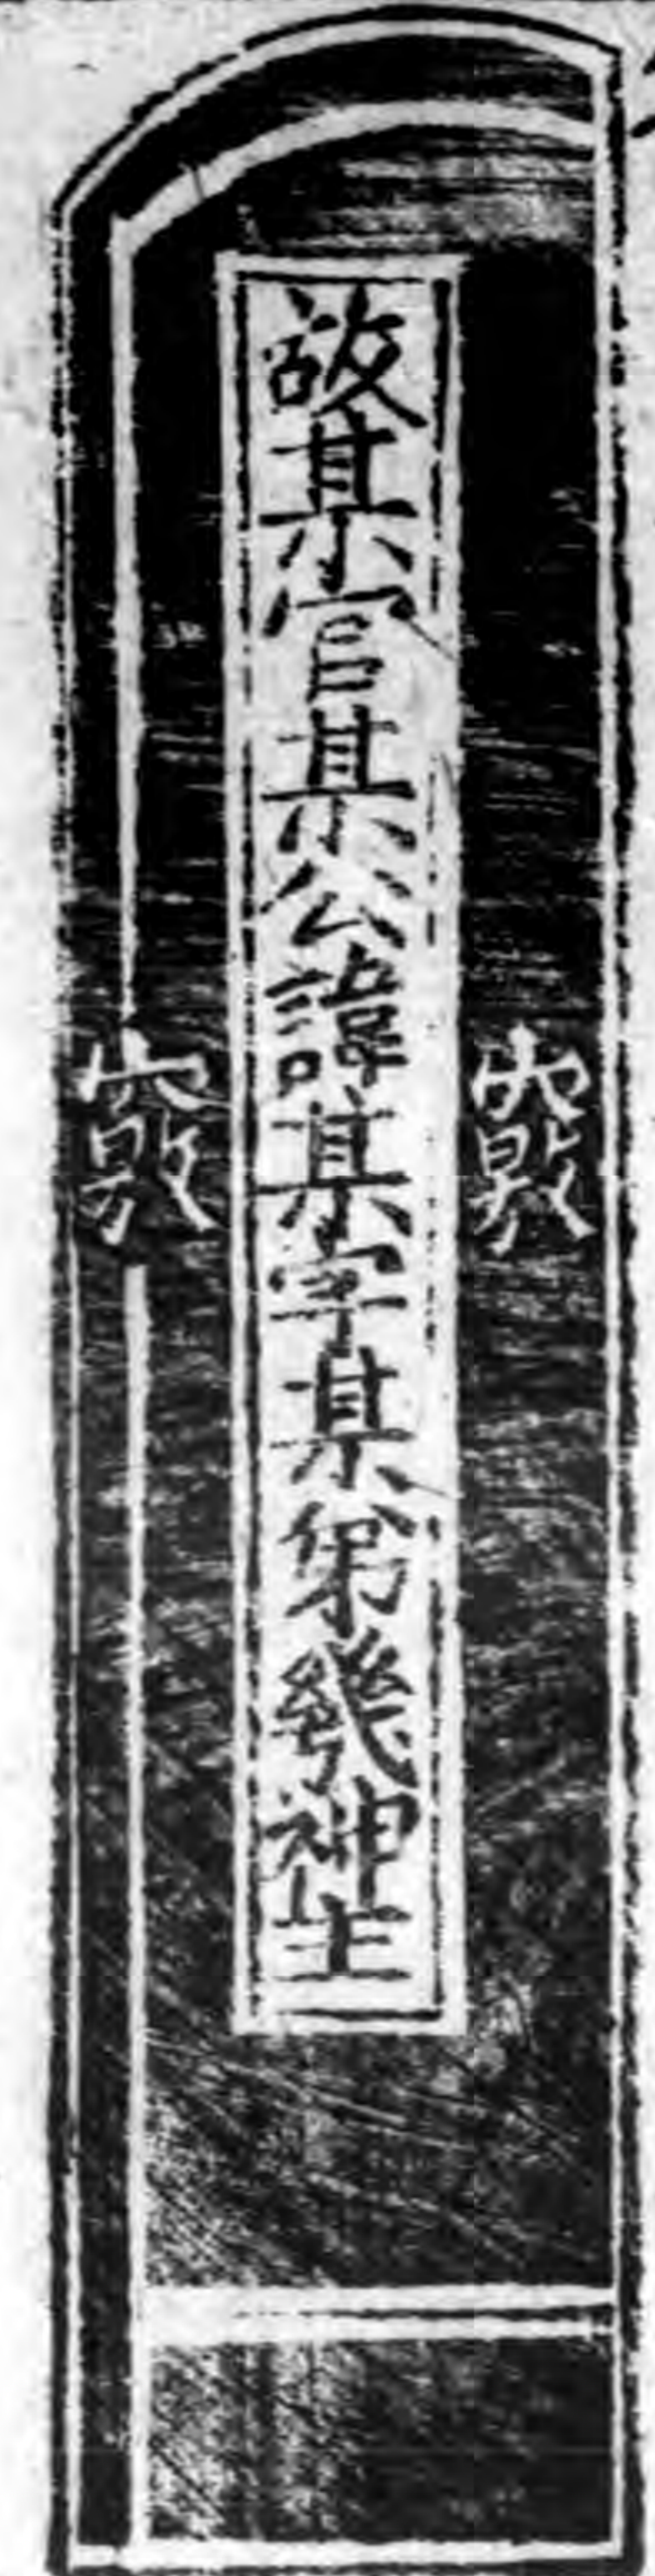 竅
故某官某公諱某字某第幾神主
竅